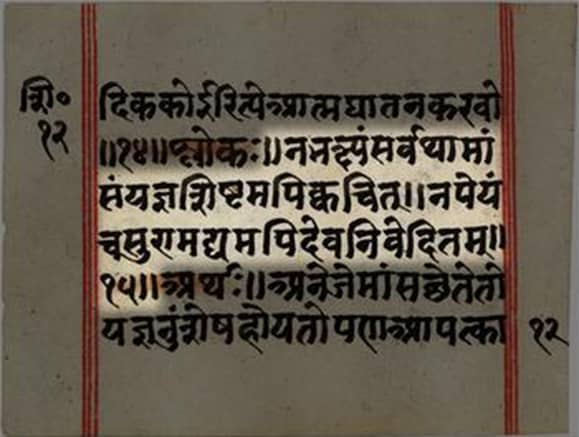 शि०
१२
दिककोईरित्येआत्मघातनकरवो
॥१४॥श्लोकः॥नभक्ष्यंसर्वथामां
संयज्ञशिष्टमपिक्वचित्॥नपेयं
चसुरामद्यमपिदेवनिवेदितम्॥
१५॥अर्थः॥अनेजेमांसछेतेतो
यज्ञनुंशेषहोयतोपणआपत्का
१२